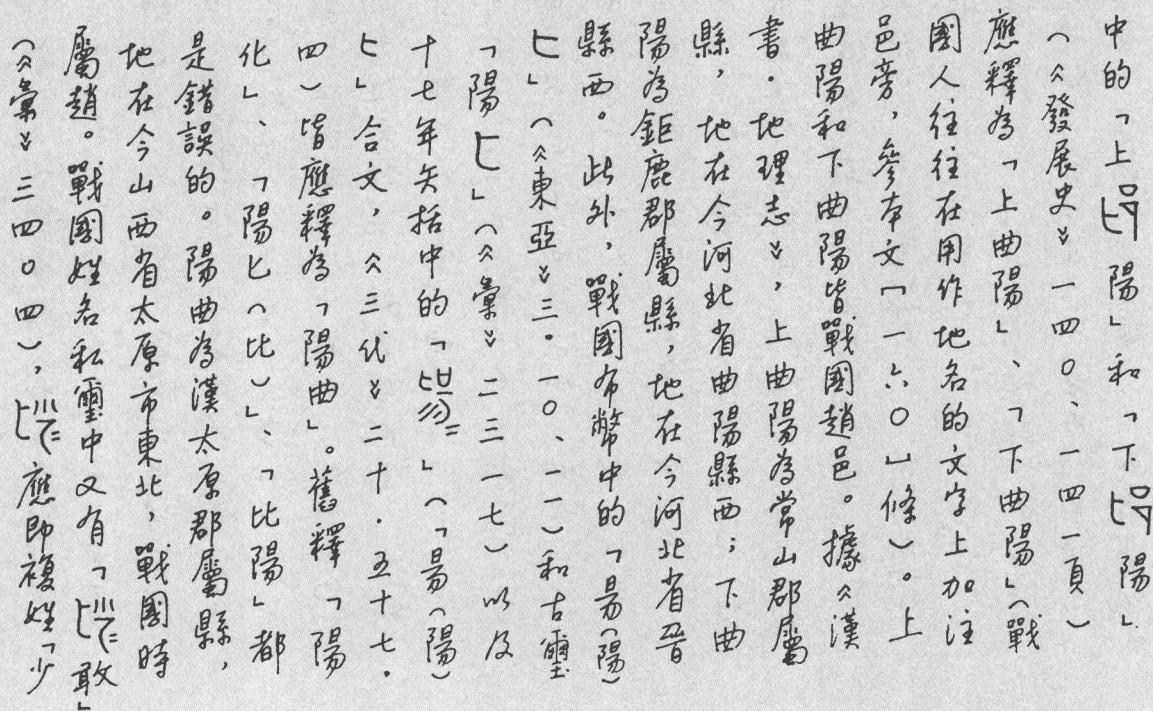 中的「上 陽」和「下 陽」
(《發展史》一四〇、一四一頁)
應釋為「上曲陽」、「下曲陽」(戰
國人往往在用作地名的文字上加注
邑旁,參本文「一六〇」條)。上
曲陽和下曲陽皆戰國趙邑。據《漢
書·地理志》,上曲陽為常山郡屬
縣,地在今河北省曲陽縣西;下曲
陽為鉅鹿郡屬縣,地在今河北省晉
縣西。此外,戰國布幣中的「昜(陽)
匕」(《東亞》三·一〇、一一)和古璽
「陽匕」(《彙》二三一七)以及
十七年矢括中的「 」(「昜(陽)
匕」合文,《三代》二十·五十七·
四)皆應釋為「陽曲」。舊釋「陽
化」、「陽匕(比)」、「比陽」都
是錯誤的。陽曲為漢太原郡屬縣,
地在今山西省太原市東北,戰國時
屬趙。戰國姓名私璽中又有「 敢」
(《彙》三四〇四), 應即複姓「少